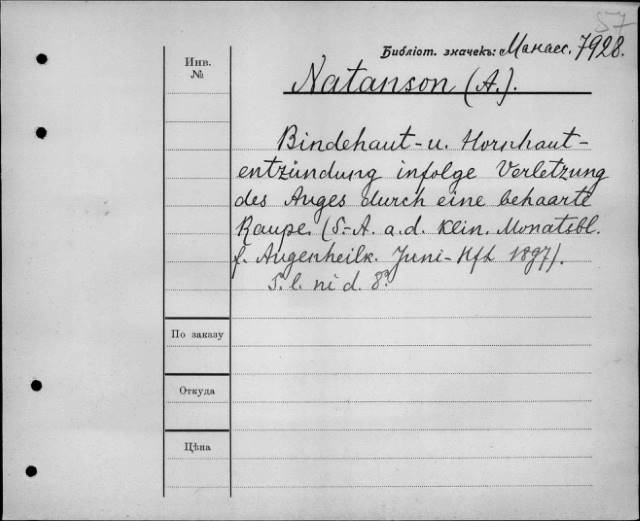 57
Библіот. значекъ: Манасс. 7928.
Инв. №
Natanson (A.).
Bindehaut- u. Hornhaut-
entzündung infolge Verletzung
des Auges durch eine behaarte
Raupe. (S.-A. a. d. Klin. Monatsbl.
f. Augenheilk. Juni-Hft 1897).
S. l. ni d. 8º
По заказу
Откуда
Цѣна